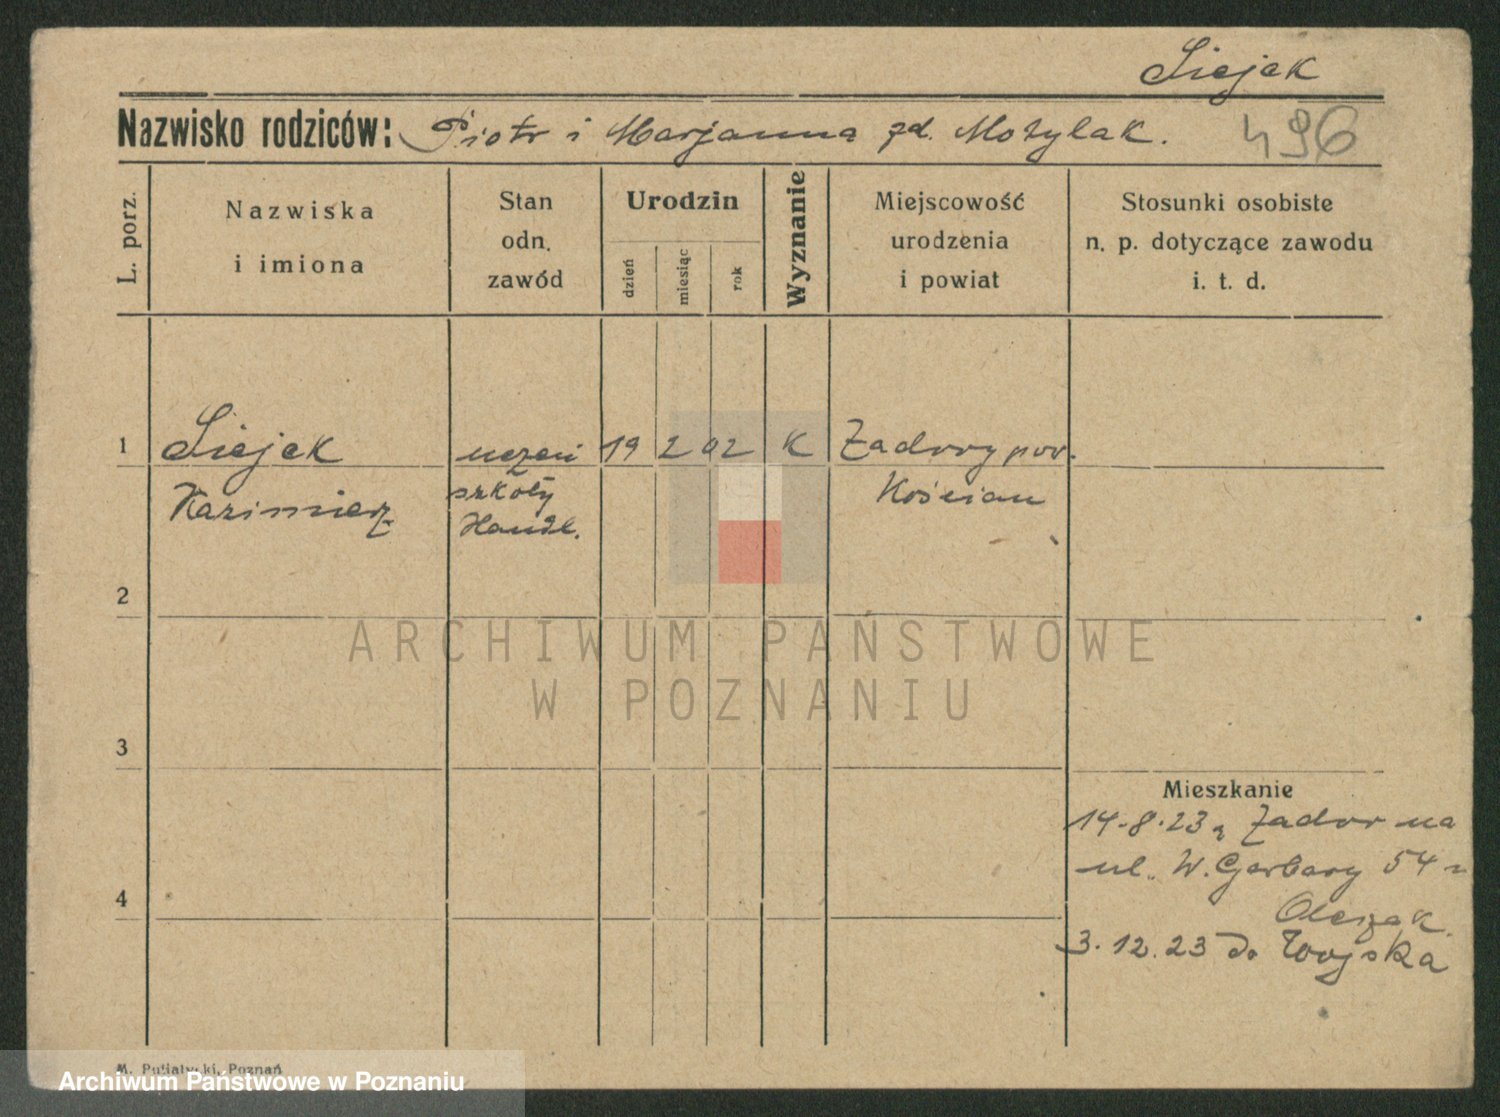 Siejek
Nazwisko rodziców: Piotr i Marjanna zd. Motylak.
496
L. porz.
Nazwiska
i imiona
Stan
odn.
zawód
Urodzin
dzień
miesiąc
rok
Wyznanie
Miejscowość
urodzenia
i powiat
Stosunki osobiste
n. p. dotyczące zawodu
i. t. d.
1
Siejek
Kazimierz
uczeń
szkoły
Handl.
19 2 02 K
Zadory pow.
Kościan
2
3
4
Mieszkanie
14.8.23 z Zador na
ul. W. Garbary 54 u
Olczak
3.12.23 do Wojska
ARCHIWUM PAŃSTWOWE
W POZNANIU
M. Putiatycki, Poznań
Archiwum Państwowe w Poznaniu